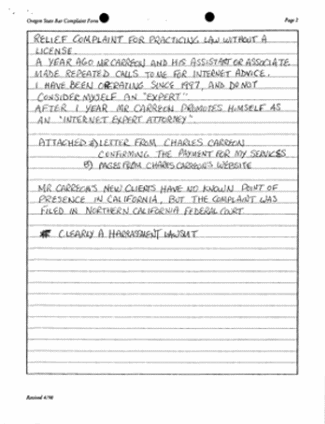 Oregon State Bar Complaint Form Page 2
RELIEF COMPLAINT FOR PRACTICING LAW WITHOUT A
LICENSE.
A YEAR AGO MR CARREON AND HIS ASSISTANT OR ASSOCIATE
MADE REPEATED CALLS TO ME FOR INTERNET ADVICE.
I HAVE BEEN OPERATING SINCE 1997, AND DO NOT
CONSIDER MYSELF AN "EXPERT"
AFTER 1 YEAR MR CARREON PROMOTES HIMSELF AS
AN "INTERNET EXPERT ATTORNEY"
ATTACHED A) LETTER FROM CHARLES CARREON
CONFIRMING THE PAYMENT FOR MY SERVICES
B) PAGES FROM CHARLES CARREON'S WEBSITE
MR CARREON'S NEW CLIENTS HAVE NO KNOWN POINT OF
PRESENCE IN CALIFORNIA, BUT THE COMPLAINT WAS
FILED IN NORTHERN CALIFORNIA FEDERAL COURT
CLEARLY A HARRASSMENT LAWSUIT
Revised 4/98